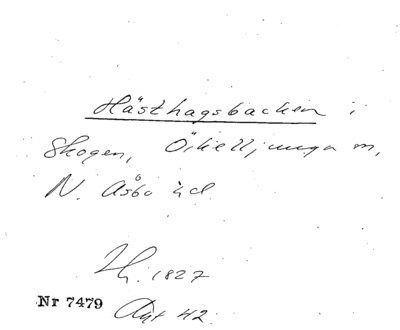 Hästhagsbacken i
Skogen, Örkelljunga m,
N. Åsbo hd
1827
Nr 7479
42